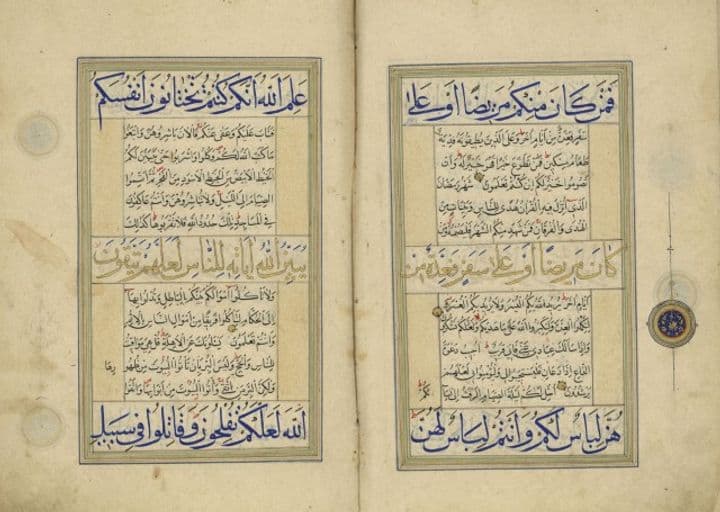 فمن كان منكم مريضا أو على
سفر فعدة من أيام أخر وعلى الذين يطيقونه فدية
طعام مسكين فمن تطوع خيرا فهو خير له وأن
تصوموا خير لكم إن كنتم تعلمون شهر رمضان
الذي أنزل فيه القرآن هدى للناس وبينات من
الهدى والفرقان فمن شهد منكم الشهر فليصمه ومن
كان مريضا أو على سفر فعدة من
أيام أخر يريد الله بكم اليسر ولا يريد بكم العسر و
لتكملوا العدة ولتكبروا الله على ما هديكم ولعلكم تشكرون
وإذا سألك عبادي عني فإني قريب أجيب دعوة
الداع إذا دعان فليستجيبوا لي وليؤمنوا بي لعلهم
يرشدون أحل لكم ليلة الصيام الرفث إلى نسائكم
هن لباس لكم وأنتم لباس لهن
علم الله أنكم كنتم تختانون أنفسكم
فتاب عليكم وعفى عنكم فالان باشروهن وابتغوا
ما كتب الله لكم وكلوا واشربوا حتى يتبين لكم
الخيط الأبيض من الخيط الأسود من الفجر ثم أتموا
الصيام إلى الليل ولا تباشروهن وأنتم عاكفون
في المساجد تلك حدود الله فلا تقربوها كذلك
يبين الله آياته للناس لعلهم يتقون
ولا تأكلوا أموالكم بينكم بالباطل وتدلوا بها
إلى الحكام لتأكلوا فريقا من أموال الناس بالإثم
وأنتم تعلمون يسئلونك عن الأهلة قل هي مواقيت
للناس والحج وليس البر بأن تأتوا البيوت من ظهورها
ولكن البر من اتقى وأتوا البيوت من أبوابها واتقوا
الله لعلكم تفلحون وقاتلوا في سبيل